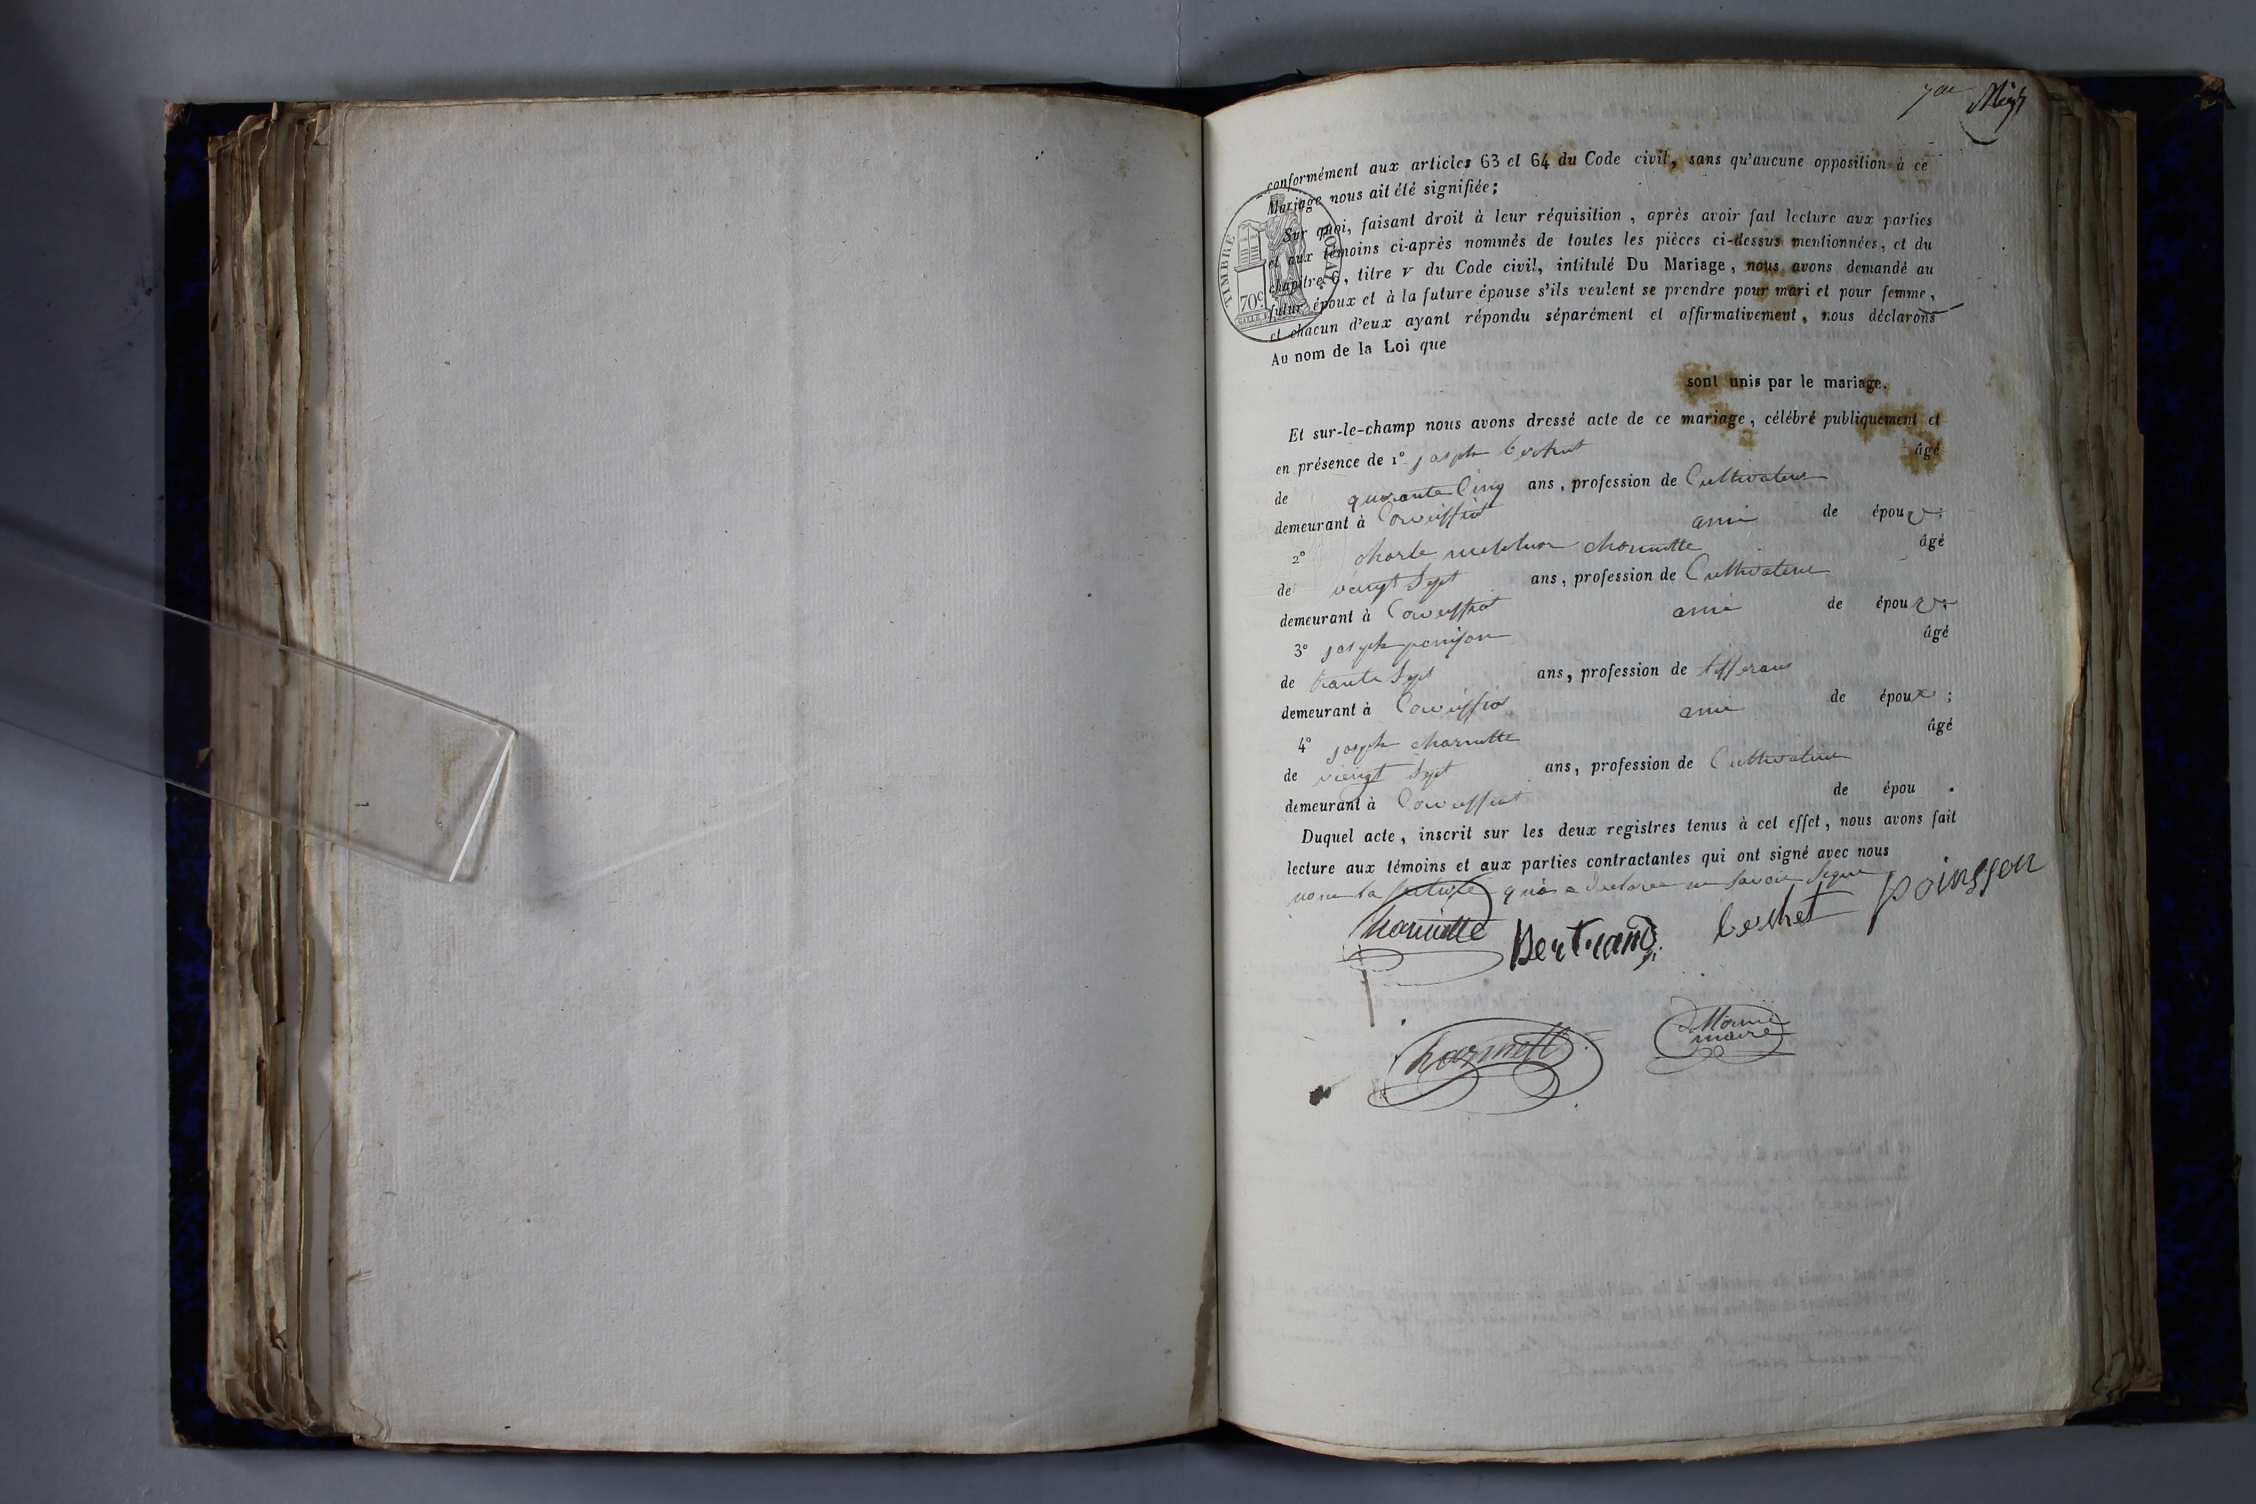 7me
conformément aux articles 63 et 64 du Code civil, sans qu'aucune opposition à ce
Mariage nous ait été signifiée;
Sur quoi, faisant droit à leur réquisition, après avoir fait lecture aux parties
et aux témoins ci-après nommés de toutes les pièces ci-dessus mentionnées, et du
chapitre 6, titre v du Code civil, intitulé Du Mariage, nous avons demandé au
futur époux et à la future épouse s'ils veulent se prendre pour mari et pour femme,
et chacun d'eux ayant répondu séparément et affirmativement, nous déclarons
Au nom de la Loi que
TIMBRE
70c
sont unis par le mariage.
Et sur-le-champ nous avons dressé acte de ce mariage, célébré publiquement et
en présence de 1° joseph âgé
de quarante Cinq ans, profession de Cultivateur
demeurant à ami de époux;
2° charle âgé
de vaingt Sept ans, profession de Cultivateur
demeurant à ami de époux;
3° joseph âgé
de trante Sept ans, profession de
demeurant à ami de époux;
4° joseph charnotte âgé
de viengt Sept ans, profession de Cultivateur
demeurant à de épou .
Duquel acte, inscrit sur les deux registres tenus à cet effet, nous avons fait
lecture aux témoins et aux parties contractantes qui ont signé avec nous
la future qui a Declaree ne Savoir Signe
Bertrand poinssen
maire